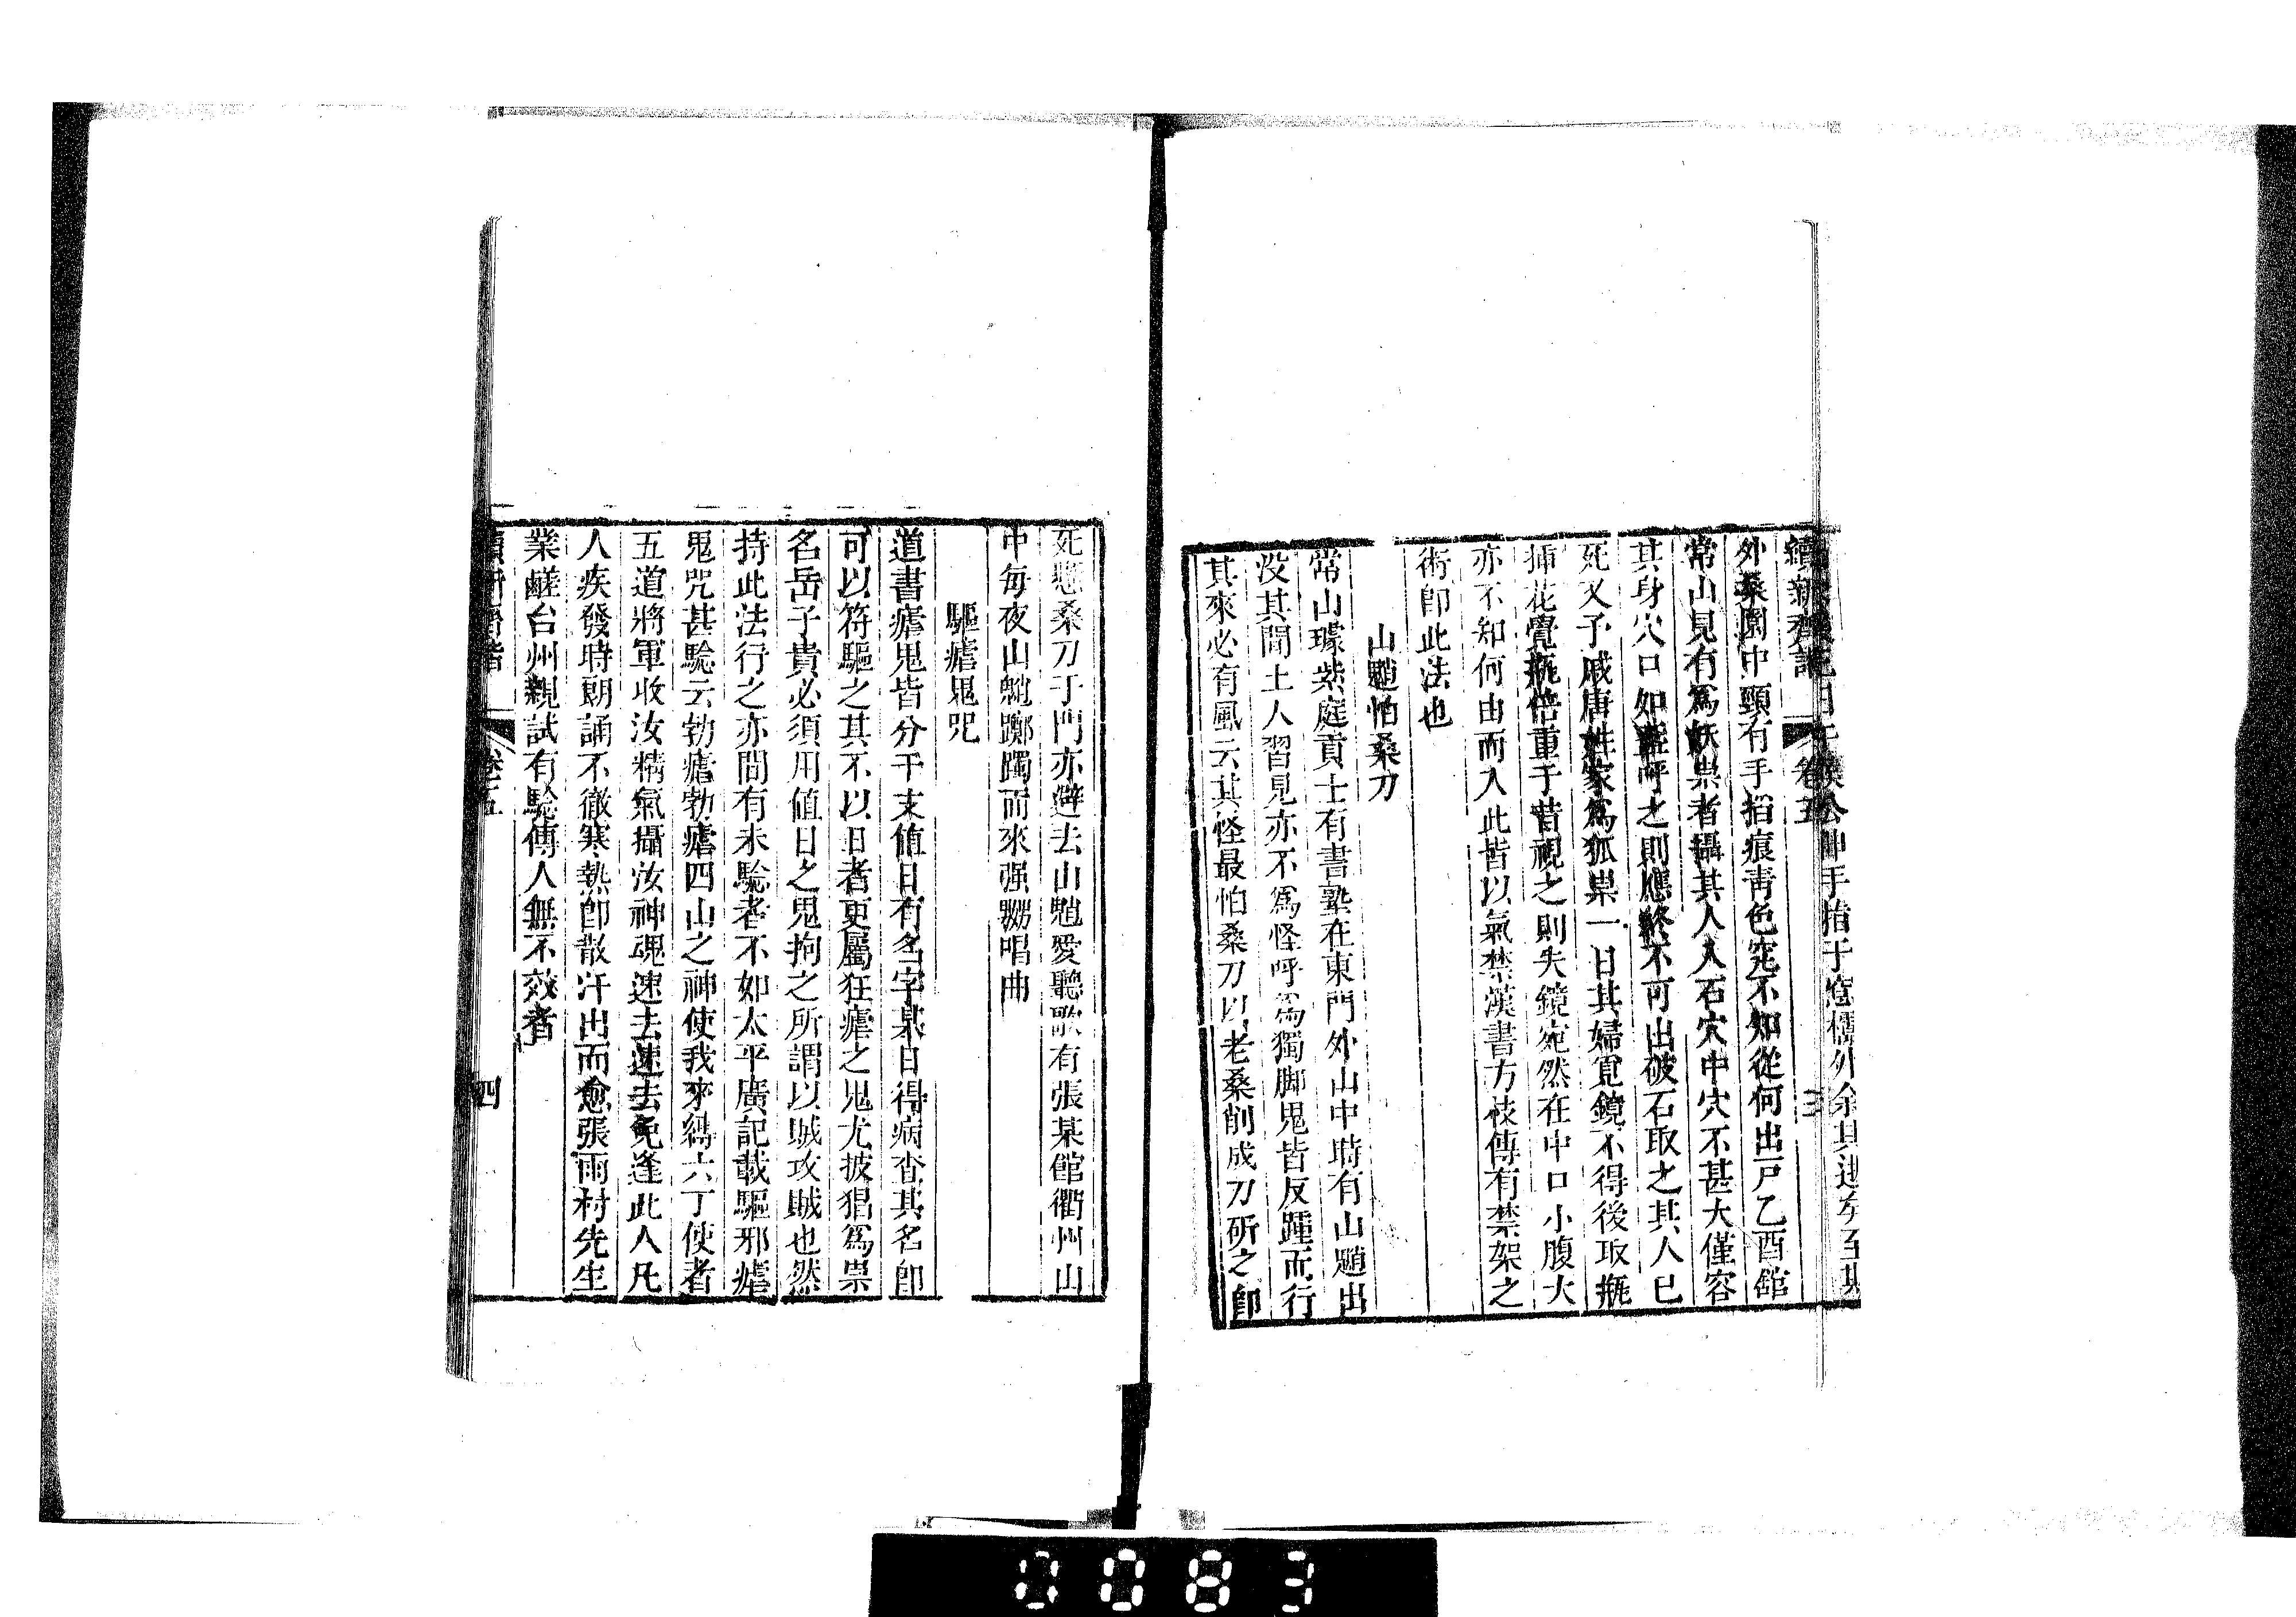 候公伸手指于窓櫺外余其逝矣至期
續新齊諧 卷五 三
外桑園中頸有手搯痕青色究不知從何出戸乙酉舘
常山見有爲妖祟者攝其人入石穴中穴不甚大僅容
其身穴口如盌呼之則應終不可出破石取之其人已
死又予戚唐姓家爲狐祟一日其婦覓鏡不得後取甁
揷花覺甁倍重于昔視之則失鏡宛然在中口小腹大
亦不知何由而入此皆以氣禁漢書方枝傳有禁架之
術卽此法也
山魈怕桑刀
常山璩紫庭貢士有書塾在東門外山中時有山魈出
没其間土人習見亦不爲怪呼爲獨脚鬼皆反踵而行
其來必有風云其怪最怕桑刀以老桑削成刀斫之卽
死懸桑刀于門亦避去山魈愛聽歌有張某館衢州山
中每夜山魈躑躅而來强嬲唱曲
驅瘧鬼咒
道書瘧鬼皆分干支值日有名字某日得病查其名卽
可以符驅之其不以日者更屬狂瘧之鬼尤披猖爲祟
名岳子貴必須用值日之鬼拘之所謂以賊攻賊也然
持此法行之亦間有未驗者不如太平廣記載驅邪瘧
鬼咒甚驗云勃瘧勃瘧四山之神使我來縛六丁使者
五道將軍收汝精氣攝汝神魂速去速去免逢此人凡
人疾發時朗誦不徹寒熱卽散汗出而愈張雨村先生
業鹺台州親試有驗傳人無不效者
續新齊諧 卷五 四
0083